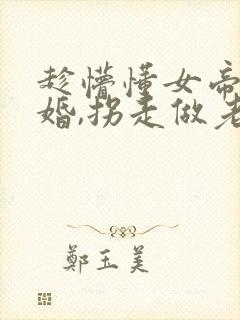 趁懵懂女帝
婚,拐走做老
鄭玉美